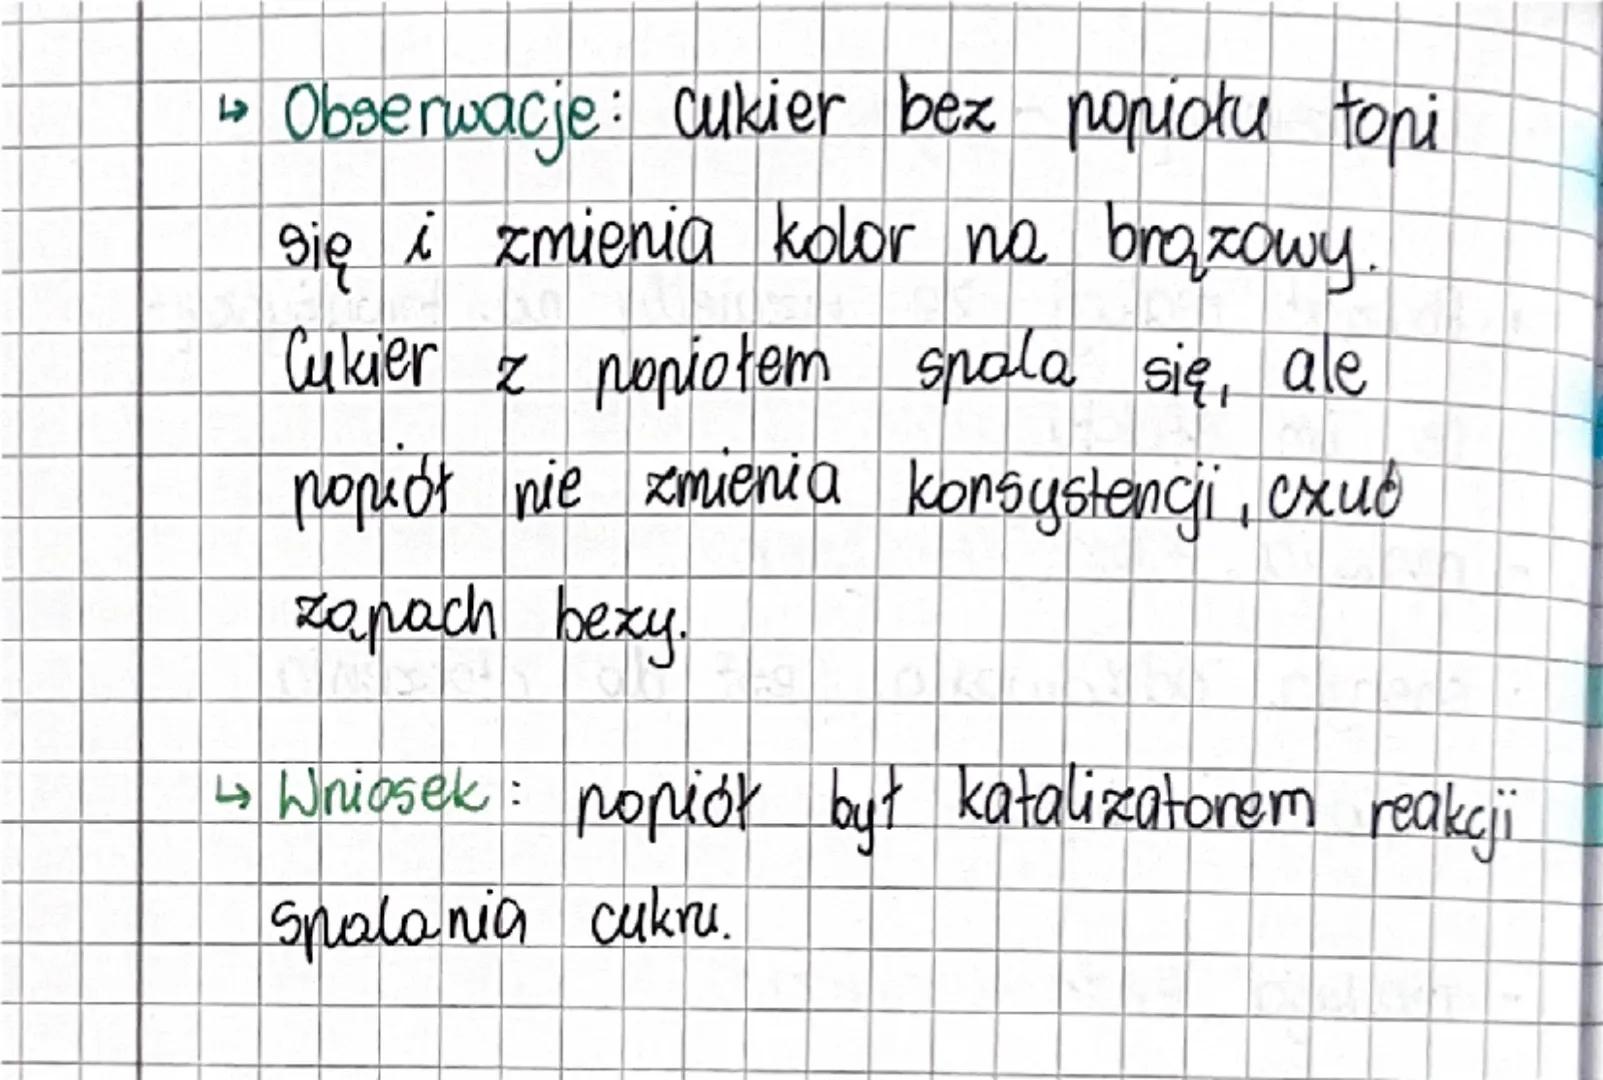 ↳ Obserwacje: cukier bez popiołu topi
się i zmienia kolor na brązowy.
Cukier z popiołem spala się, ale
popiół nie zmienia konsystencji, czuć
zapach bezy.
↳ Wniosek: popiół był katalizatorem reakcji
spalania cukru.